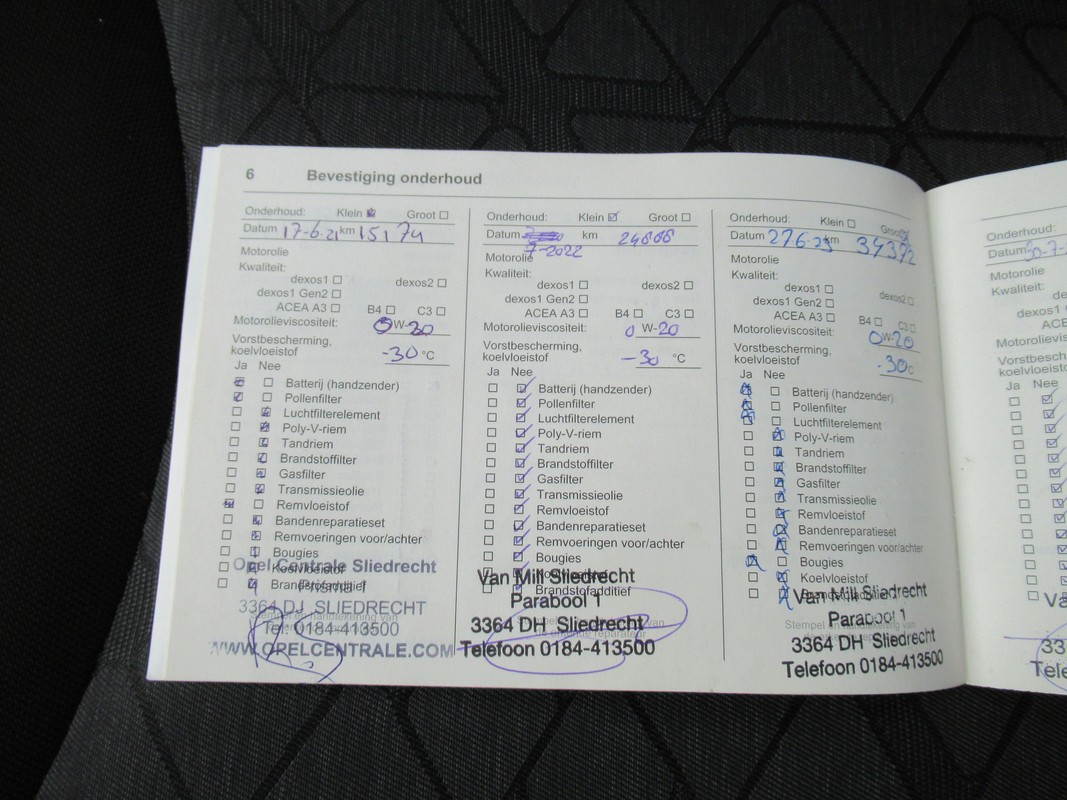 6 Bevestiging onderhoud
Onderhoud: Klein Groot
Datum 17-6-21 km 15174
Motorolie
Kwaliteit:
dexos1 dexos2
dexos1 Gen2
ACEA A3 B4 C3
Motorolieviscositeit: 0W-20
Vorstbescherming,
koelvloeistof -30 °C
Ja Nee
Batterij (handzender)
Pollenfilter
Luchtfilterelement
Poly-V-riem
Tandriem
Brandstoffilter
Gasfilter
Transmissieolie
Remvloeistof
Bandenreparatieset
Remvoeringen voor/achter
Bougies
Koelvloeistof
Brandstofadditief
Opel Centrale Sliedrecht
Prisma 1
3364 DJ SLIEDRECHT
Tel. 0184-413500
WWW.OPELCENTRALE.COM
Onderhoud: Klein Groot
Datum km 24868
7-2022
Motorolie
Kwaliteit:
dexos1 dexos2
dexos1 Gen2
ACEA A3 B4 C3
Motorolieviscositeit: 0W-20
Vorstbescherming,
koelvloeistof -30 °C
Ja Nee
Batterij (handzender)
Pollenfilter
Luchtfilterelement
Poly-V-riem
Tandriem
Brandstoffilter
Gasfilter
Transmissieolie
Remvloeistof
Bandenreparatieset
Remvoeringen voor/achter
Bougies
Koelvloeistof
Brandstofadditief
Van Mill Sliedrecht
Parabool 1
3364 DH Sliedrecht
Telefoon 0184-413500
Onderhoud: Klein Groot
Datum 27-6-23 km 34372
Motorolie
Kwaliteit:
dexos1 dexos2
dexos1 Gen2
ACEA A3 B4 C3
Motorolieviscositeit: 0W-20
Vorstbescherming,
koelvloeistof -30c
Ja Nee
Batterij (handzender)
Pollenfilter
Luchtfilterelement
Poly-V-riem
Tandriem
Brandstoffilter
Gasfilter
Transmissieolie
Remvloeistof
Bandenreparatieset
Remvoeringen voor/achter
Bougies
Koelvloeistof
Brandstofadditief
Stempel en
Van Mill Sliedrecht
Parabool 1
3364 DH Sliedrecht
Telefoon 0184-413500
Onderhoud:
Datum 30-7-
Motorolie
Kwaliteit:
Ja Nee